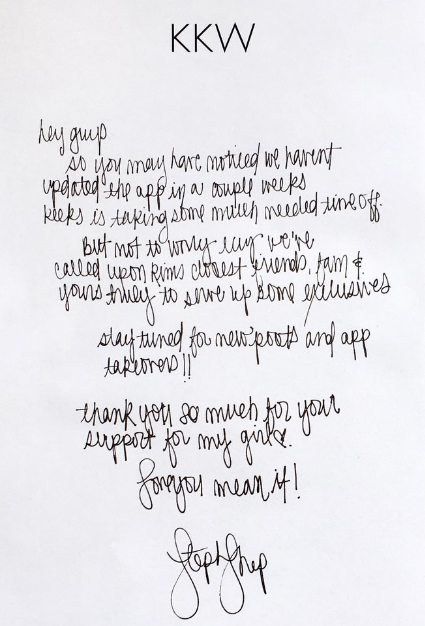 KKW
hey guys
so you may have noticed we havent
updated the app in a couple weeks
keeks is taking some much needed time off.
but not to worry cuz we've
called upon kims closest friends, fam &
yours truly to serve up some exclusives
stay tuned for new posts and app
takeovers!!
thank you so much for your
support for my girl
love you mean it!
Steph Shep